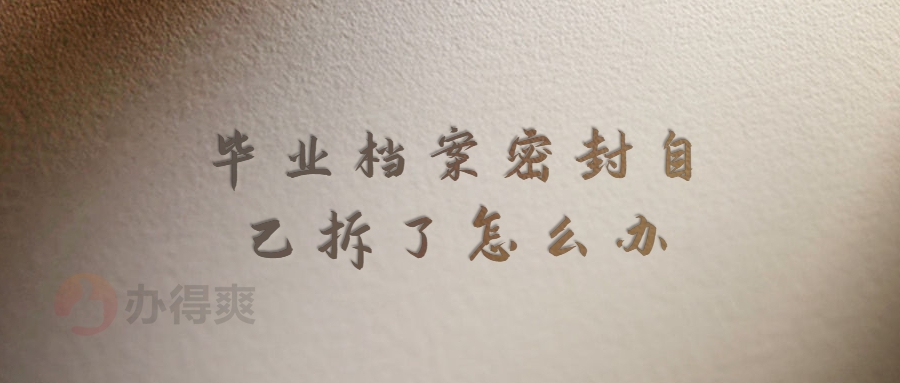 毕业档案密封自
己拆了怎么办
办得爽